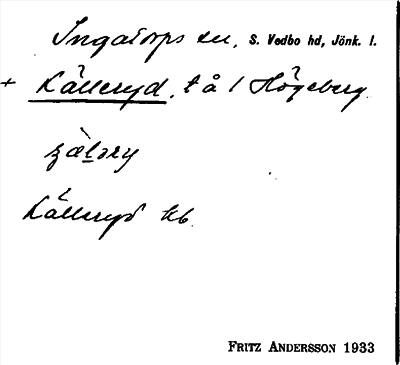 Ingatorps sn, S. Vedbo hd, Jönk. l.
+ Källeryd, t å 1 Högeberg
Källeryd kb
FRITZ ANDERSSON 1933